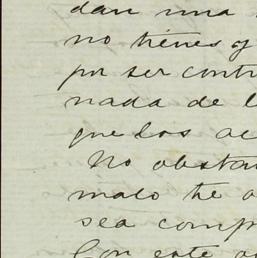 dan una
no tienes q
por ser contr
nada de l
que los ac
No obstan
malo he a
sea comp
Con este a